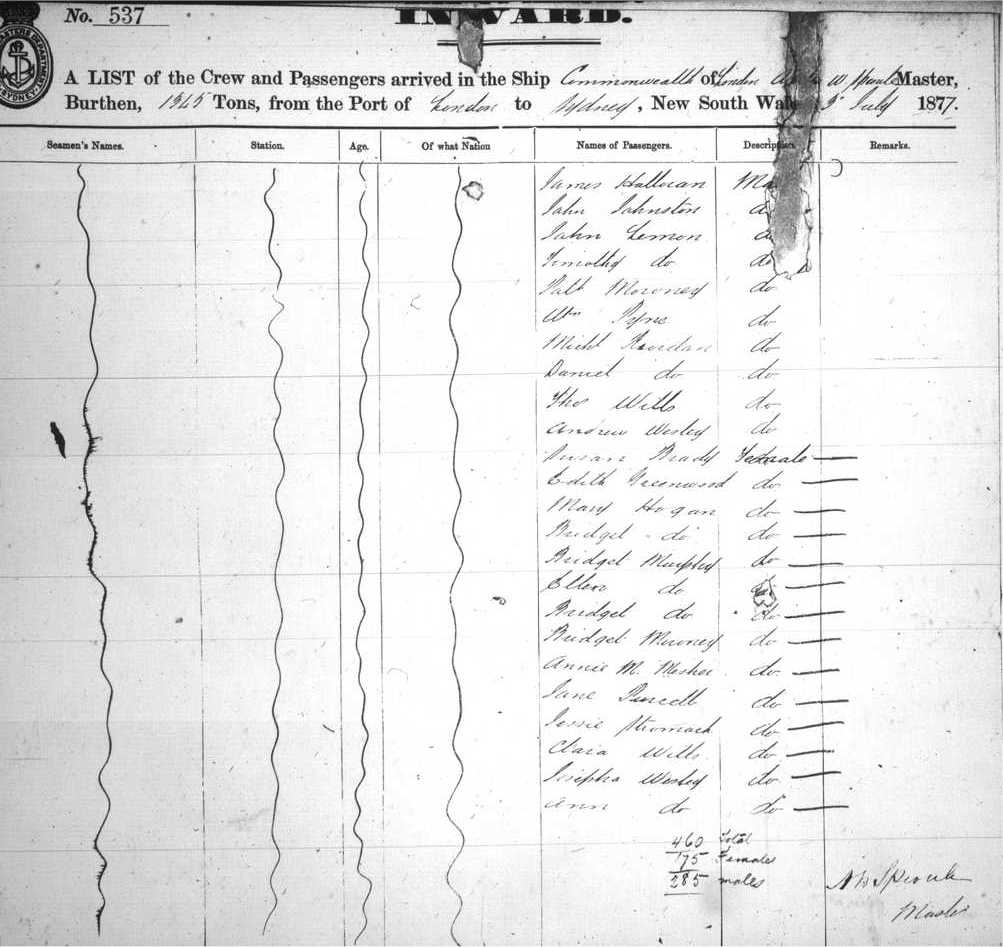 No. 537
INWARD.
A LIST of the Crew and Passengers arrived in the Ship Commonwealth of London Master,
Burthen, 1345 Tons, from the Port of London to Sydney, New South Wales 3 July 1877.
Seamen's Names. Station. Age. Of what Nation Names of Passengers. Description. Remarks.
James Halloran Ma
John Johnston d
John Lemon d
Timothy do do
Patk Mooroney do
Wm Pyne do
Michl Riordan do
Daniel do do
Thos Wills do
Andrew Wesley do
Susan Brady Female —
Edith Greenwood do —
Mary Hogan do —
Bridget do do —
Bridget Murphy do —
Ellen do do —
Bridget do do —
Bridget Mooroney do —
Annie M. do —
Jane Purcell do —
Jessie Stromach do —
Clara Wills do —
Josepha Wesley do —
Ann do do —
460 Total
175 Females
285 males
Master